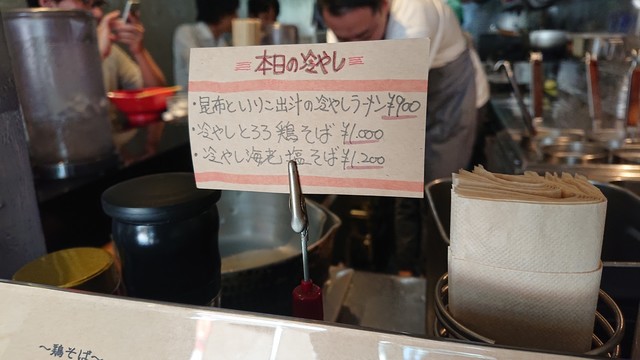 本日の冷やし
・昆布といりこ出汁の冷やしラーメン ¥900
・冷やしとろろ鶏そば ¥1.000
・冷やし海老塩そば ¥1.200
～鶏そば～